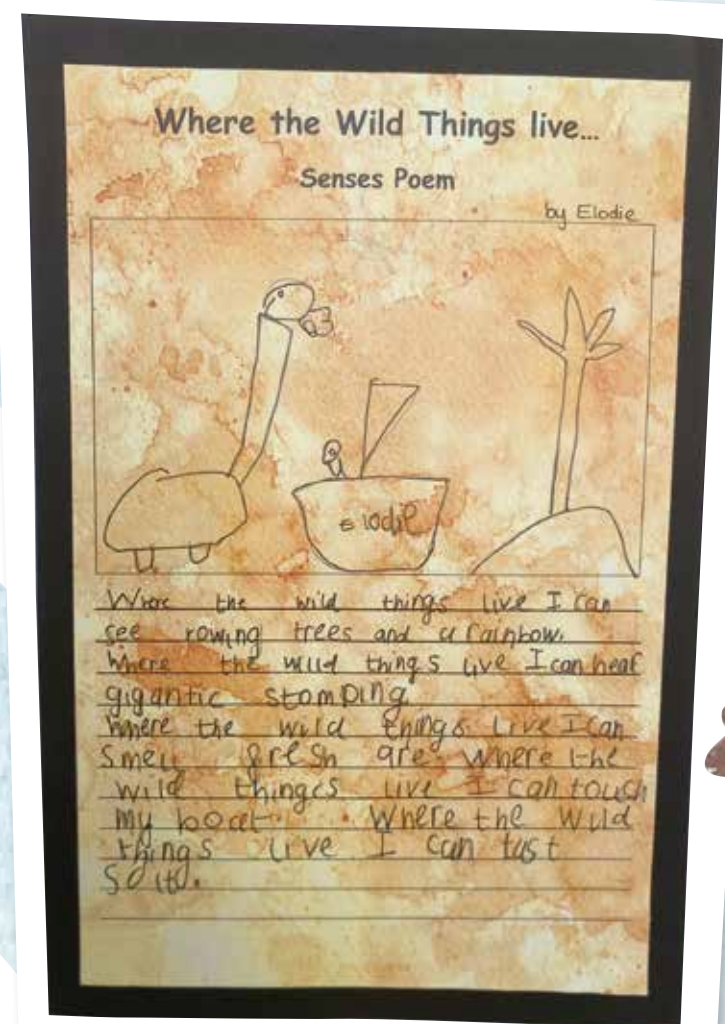 Where the Wild Things live...
Senses Poem
by Elodie
Elodie
Where the wild things live I can
see rowing trees and a rainbow.
Where the wild things live I can hear
gigantic stomping
Where the wild things live I can
smell fresh are. Where the
wild thinges live I can touch
my boat Where the wild
things live I can tast
Solt.